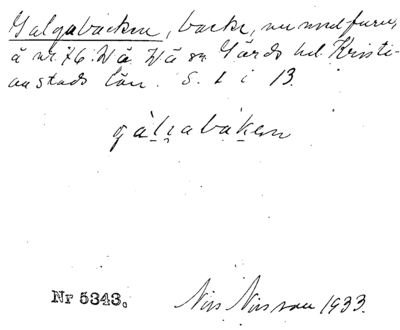 Galgabacken, backe, nu med furu,
å nr. 76 Wä Wä sn Gärds hd. Kristi-
anstads län. S. 1 i 13.
gàlgabákem
Nr 5343.
Nils Nilsson 1933.